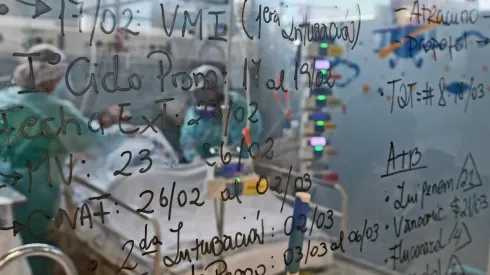 → 17/02: VMI (1era Intubación)
1° Ciclo Prono: 17 al 19/02
Fecha Ext: /02
→ MV: 23 26/02
→ CNAF: 26/02 al 02/03
2da Intubación: 02/03
Prono: 03/03 al 06/03
- Atracurio
- Propofol
• TQT: #8 /03
ATB
• Imipenem
• Vancomic
• Fluconazol